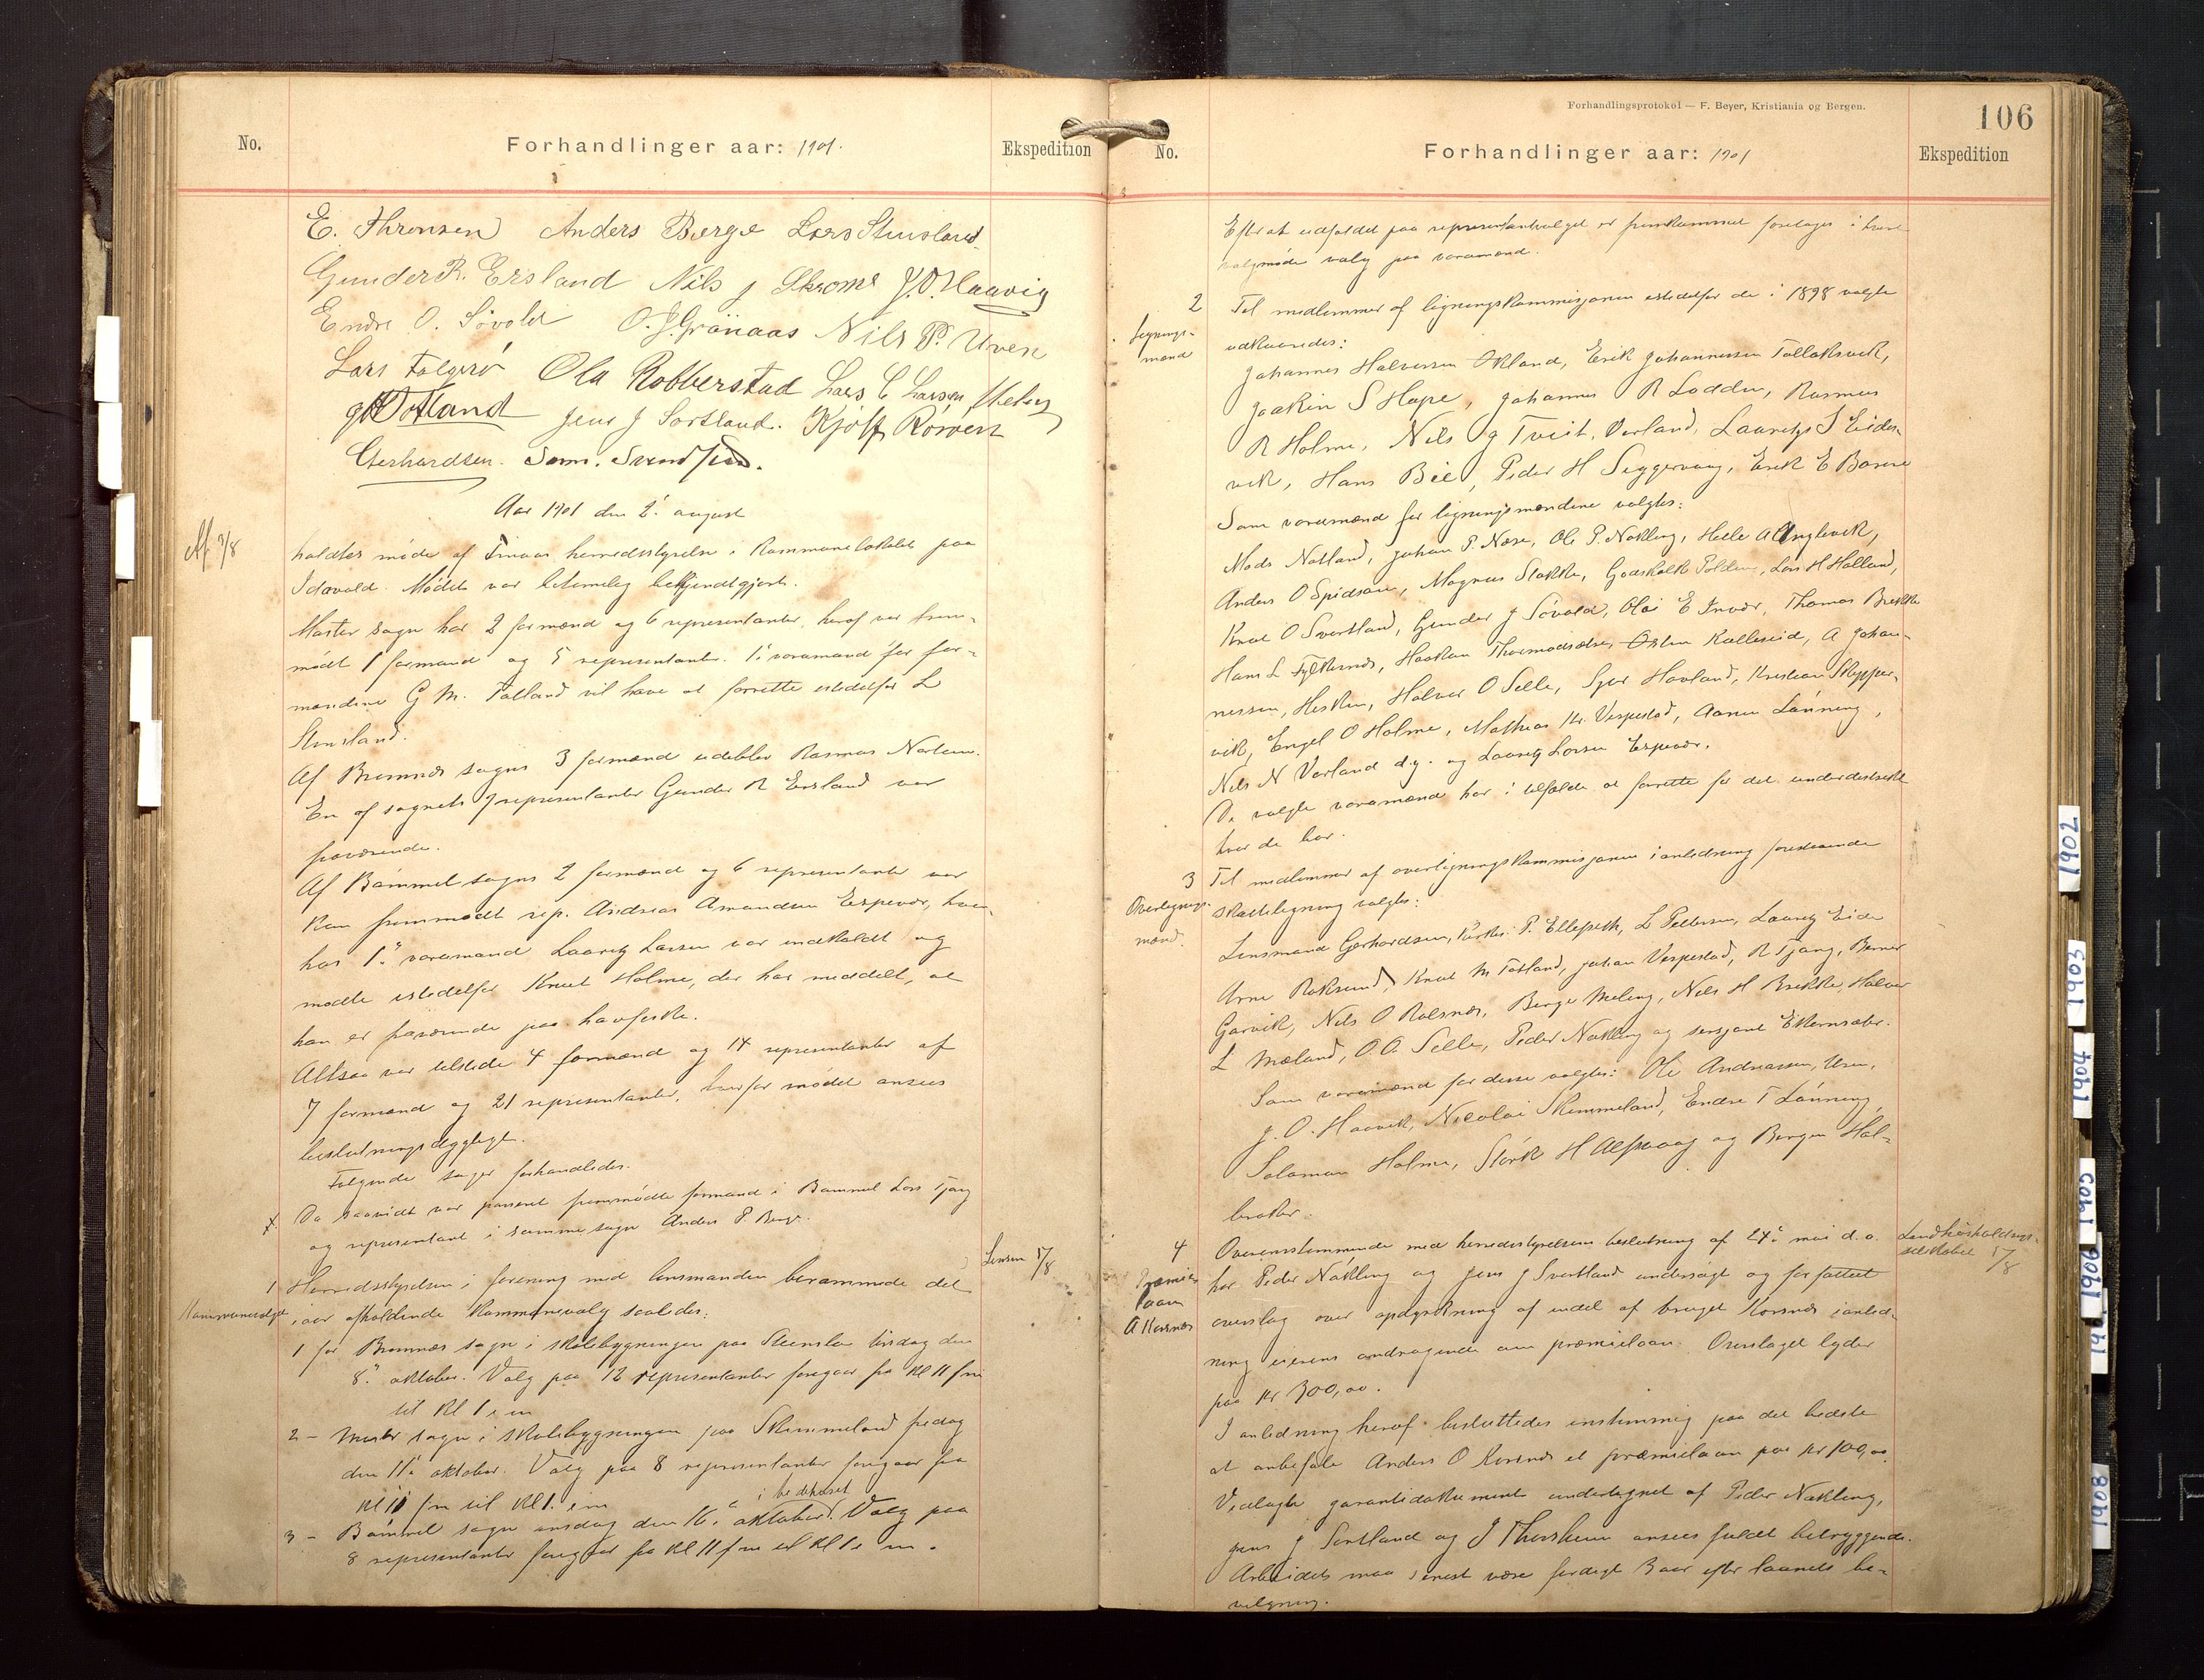 No.
Forhandlinger aar: 1901.
Ekspedition
E. Thronsen Anders Berge Lars Stensland
Gunder R. Eisland Nils J Skrome J.O. Haavig
Endre O. Søvold O.J. Grønaas Nils P. Uren
Lars Folgerø Ola Robberstad Lars C Larsen
Totland Jens J Sortland. Kjøl Rørvig
Gerhardsen. Sam. Svendsen.
Aar 1901 den 2. august
Af 3/8
holdtes møde af Finaas herredsstyrelse i kommunelokalet paa
Idavold. Mødet var betimelig bekjendtgjort.
Moster sogn har 2 formænd og 6 representanter, heraf var frem-
mødt 1 formand og 5 representanter. 1. varamand for for-
mændene G M. Totland vil have at forrette istedetfor L
Stensland.
Af Bremnes sogns 3 formænd udeblev Rasmus
En af sognets 9 representanter Gunder R Eisland var
fraværende.
Af Bømmel sogns 2 formænd og 6 representanter var
kun fremmødt rep. Andreas Amundsen Espevær, hvor-
hos 1. varamand Lauritz Larsen var indkaldt og
mødte istedetfor Knut Holme, der har meddelt, at
han er fraværende paa havfiske.
Altsaa var tilstede 4 formænd og 14 representanter af
7 formænd og 21 representanter, hvorfor mødet ansees
beslutningsdygtigt.
Følgende sager forhandledes.
x. Da saavidt var passeret fremmødte formand i Bømmel Lars Tjong
og representant i samme sogn Anders P. Berge.
1 Herredsstyrelsen i forening med lensmanden berammede det
Lensm 17/8
Kommunevalget
iaar afholdende kommunevalg saaledes:
1 for Bremnes sogn i skolebygningen paa Stensla tirsdag den
8. oktober. Valg paa 12 representanter foregaar fra kl 11 fm
til kl 1 e m
2 - Moster sogn i skolebygningen paa Skimmeland fredag
den 11. oktober. Valg paa 8 representanter foregaar fra
kl 11 fm til kl 1. em
i bedehuset
3 - Bømmel sogn onsdag den 16. oktober. Valg paa
8 representanter foregaar fra kl 11 fm til kl 1 e m.
Forhandlingsprotokol — F. Beyer, Kristiania og Bergen.
106
No.
Forhandlinger aar: 1901
Ekspedition
Efterat udfaldet paa representantvalget er fremkommet foretages i hvert
valgmøde valg paa varamænd.
2 Til medlemmer af ligningskommisjonen istedetfor de i 1898 valgte
Lignings-
mænd
udkaaredes:
Johannes Halvorsen Økland, Erik Johannessen Tollaksvik,
Joakim S Hope, Johannes R Lodden, Rasmus
R Holme, Nils J Tveit, Vorland, Lauritz J Eides-
vik, Hans Bie, Peder H Siggervaag, Erik E
Som varamænd for ligningsmændene valgtes:
Mads Notland, Johan P. Næse, Ole P. Nøkling, Helle A Inglevik,
Anders O Spidsøen, Magnus Stokke, Godskalk Folderø, Lars H Holland,
Knut O Svortland, Gunder J Søvold, Ola E Innvær, Thomas Brekke
Hans L Fylkesnes, Haakon Thormodsæter, Østen Kalleseid, A Johan-
nessen, Hisken, Halvor O Selle, Sjur Hovland, Kristian Skipper-
vik, Engel O Holme, Mathias Kr. Vespestad, Aamen Lønning,
Nils N Vorland d.y. og Lauritz Larsen Espevær.
De valgte varamænd har i tilfælde at forrette for det underdistrikt
hvor de bor.
3 Til medlemmer af overligningskommisjonen i anledning forestaaende
Overlignings-
mænd.
skatteligning valgtes:
Lensmand Gerhardsen, kirkes. P. Ellefseth, L Pettersen, Lauritz Eide
Arne Røksund, Knut M Totland, Johan Vespestad, R Tjong, Berner
Gorvik, Nils O Rolsnes, Børge Meling, Nils H Brekke, Halvor
L Mæland, O.A. Selle, Peder Nøkling og sersjant Ekernsæter.
Som varamænd for disse valgtes: Ole Andreassen, Uren,
J. O. Haavik, Nicolai Skimmeland, Endre T Lønning,
Salamon Holme, Størk H Alfsvaag og Børge Hal-
leraker.
4 Overensstemmende med herredsstyrelsens beslutning af 24. mai d. a.
Landhusholdnings-
selskabet 17/8
Præmie-
laan
A Korsnes
har Peder Nøkling og Jens J Svortland undersøgt og forfattet
overslag over opdyrkning af endel af bruget Korsnes i anled-
ning eierens andragende om præmielaan. Overslaget lyder
paa kr 300,00.
I anledning heraf besluttedes enstemmig paa det bedste
at anbefale Anders O Korsnes et præmielaan paa kr 100,00.
Vedlagte garantidokument undertegnet af Peder Nøkling,
Jens J Sortland og J Thorsheim ansees fuldt betryggende.
Arbeidet maa senest være færdigt 3 aar efter laanets be-
vilgning.
1902
1903
1904
1905
1906
1908